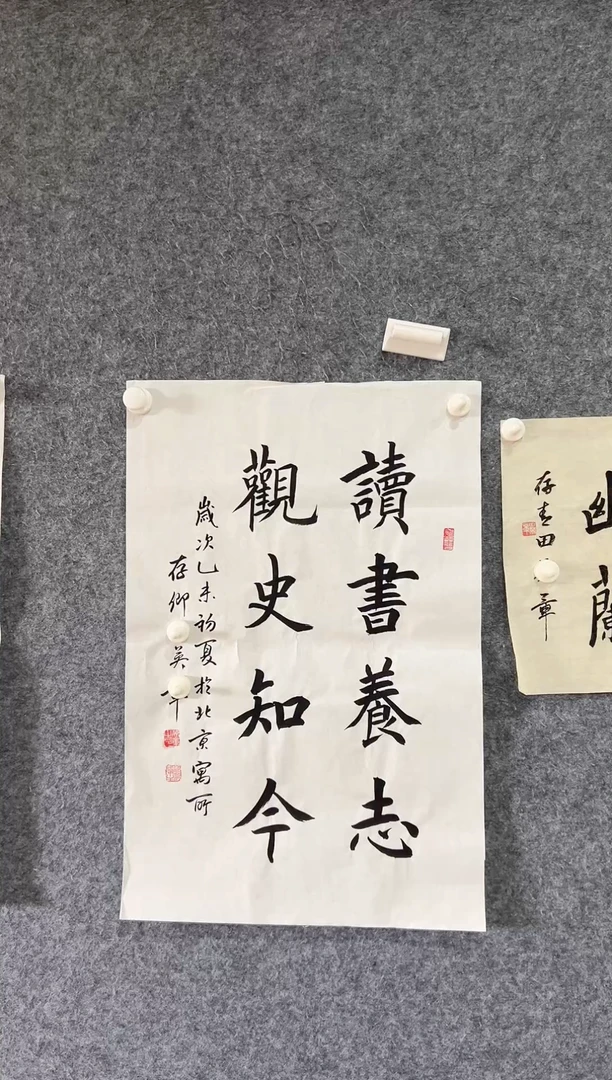 讀書養志
觀史知今
歲次乙未初夏於北京寓所
存卿 英
幽蘭
存青田 章